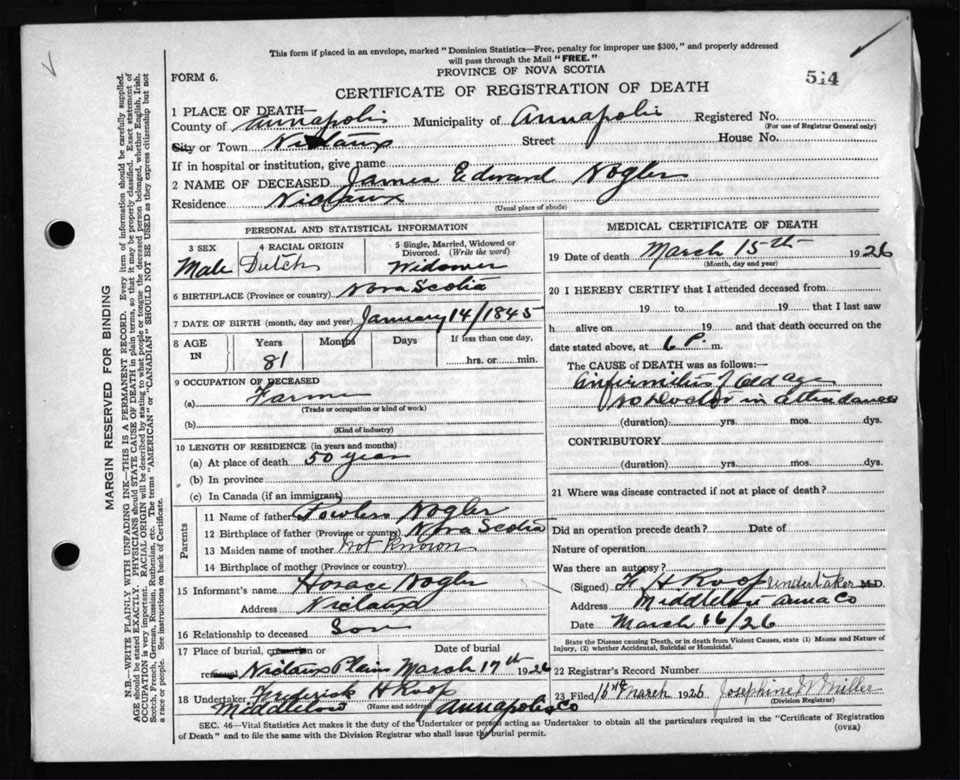 This form if placed in an envelope, marked "Dominion Statistics—Free, penalty for improper use $300," and properly addressed
will pass through the Mail "FREE."
PROVINCE OF NOVA SCOTIA
FORM 6.
514
CERTIFICATE OF REGISTRATION OF DEATH
1 PLACE OF DEATH—
County of Annapolis Municipality of Annapolis Registered No.
(For use of Registrar General only)
City or Town Nictaux Street House No.
If in hospital or institution, give name
2 NAME OF DECEASED James Edward Nogler
Residence Nictaux
(Usual place of abode)
PERSONAL AND STATISTICAL INFORMATION
3 SEX 4 RACIAL ORIGIN 5 Single, Married, Widowed or
Divorced. (Write the word)
Male Dutch Widower
6 BIRTHPLACE (Province or country) Nova Scotia
7 DATE OF BIRTH (month, day and year) January 14/1845
8 AGE IN Years Months Days If less than one day,
81 hrs. or min.
9 OCCUPATION OF DECEASED
(a) Farmer
(Trade or occupation or kind of work)
(b)
(Kind of industry)
10 LENGTH OF RESIDENCE (in years and months)
(a) At place of death 50 year
(b) In province
(c) In Canada (if an immigrant)
Parents
11 Name of father Fowler Nogler
12 Birthplace of father (Province or country) Nova Scotia
13 Maiden name of mother not known
14 Birthplace of mother (Province or country)
15 Informant's name Horace Nogler
Address Nictaux
16 Relationship to deceased Son
17 Place of burial, cremation or Date of burial
removal Nictaux Plain March 17th 1926
18 Undertaker Frederick H Roop
Middleton (Name and address) Annapolis Co
MEDICAL CERTIFICATE OF DEATH
19 Date of death March 15th 1926
(Month, day and year)
20 I HEREBY CERTIFY that I attended deceased from
19 to 19 that I last saw
h alive on 19 and that death occurred on the
date stated above, at 6 P. m.
The CAUSE OF DEATH was as follows:
Infirmities of Old Age
no Doctor in attendance
(duration) yrs. mos. dys.
CONTRIBUTORY
(duration) yrs. mos. dys.
21 Where was disease contracted if not at place of death?
Did an operation precede death? Date of
Nature of operation
Was there an autopsy?
(Signed) F H Roop undertaker M.D.
Address Middleton Anna Co
Date March 16/26
State the Disease causing Death, or in death from Violent Causes, state (1) Means and Nature of
Injury, (2) whether Accidental, Suicidal or Homicidal.
22 Registrar's Record Number
23 Filed 16th March 1926 Josephine W Miller
(Division Registrar)
SEC. 46—Vital Statistics Act makes it the duty of the Undertaker or person acting as Undertaker to obtain all the particulars required in the "Certificate of Registration
of Death" and to file the same with the Division Registrar who shall issue the burial permit.
(OVER)
MARGIN RESERVED FOR BINDING
N.B.—WRITE PLAINLY WITH UNFADING INK—THIS IS A PERMANENT RECORD. Every item of information should be carefully supplied.
AGE should be stated EXACTLY. PHYSICIANS should STATE CAUSE OF DEATH in plain terms, so that it may be properly classified. Exact statement of
OCCUPATION is very important. RACIAL ORIGIN will be described by stating to what people or tongue the deceased person belonged, whether English, Irish,
Scotch, French, German, Russian, Ruthenian, etc. The terms "AMERICAN" or "CANADIAN" SHOULD NOT BE USED as they express citizenship but not
a race or people. See instructions on back of Certificate.